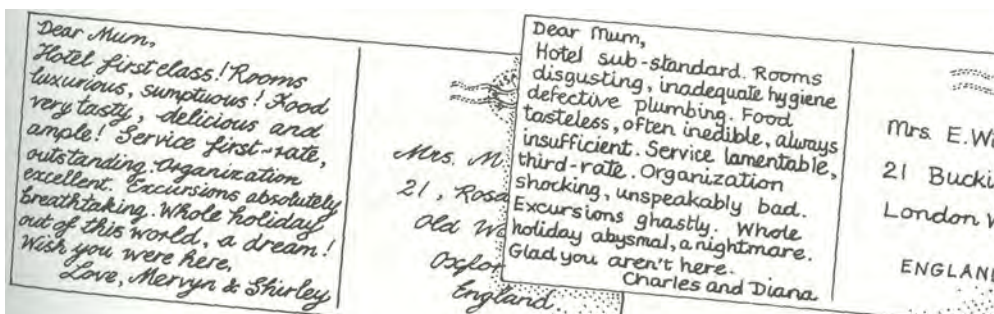 Dear Mum,
Hotel first class! Rooms
luxurious, sumptuous! Food
very tasty, delicious and
ample! Service first-rate,
outstanding. Organization
excellent. Excursions absolutely
breathtaking. Whole holiday
out of this world, a dream!
Wish you were here,
Love, Mervyn & Shirley
Mrs. M
21, Rosa
Old W
Oxfor
England.
Dear Mum,
Hotel sub-standard. Rooms
disgusting, inadequate hygiene
defective plumbing. Food
tasteless, often inedible, always
insufficient. Service lamentable,
third-rate. Organization
shocking, unspeakably bad.
Excursions ghastly. Whole
holiday abysmal, a nightmare.
Glad you aren't here.
Charles and Diana
Mrs. E.W
21 Bucki
London W
ENGLAN